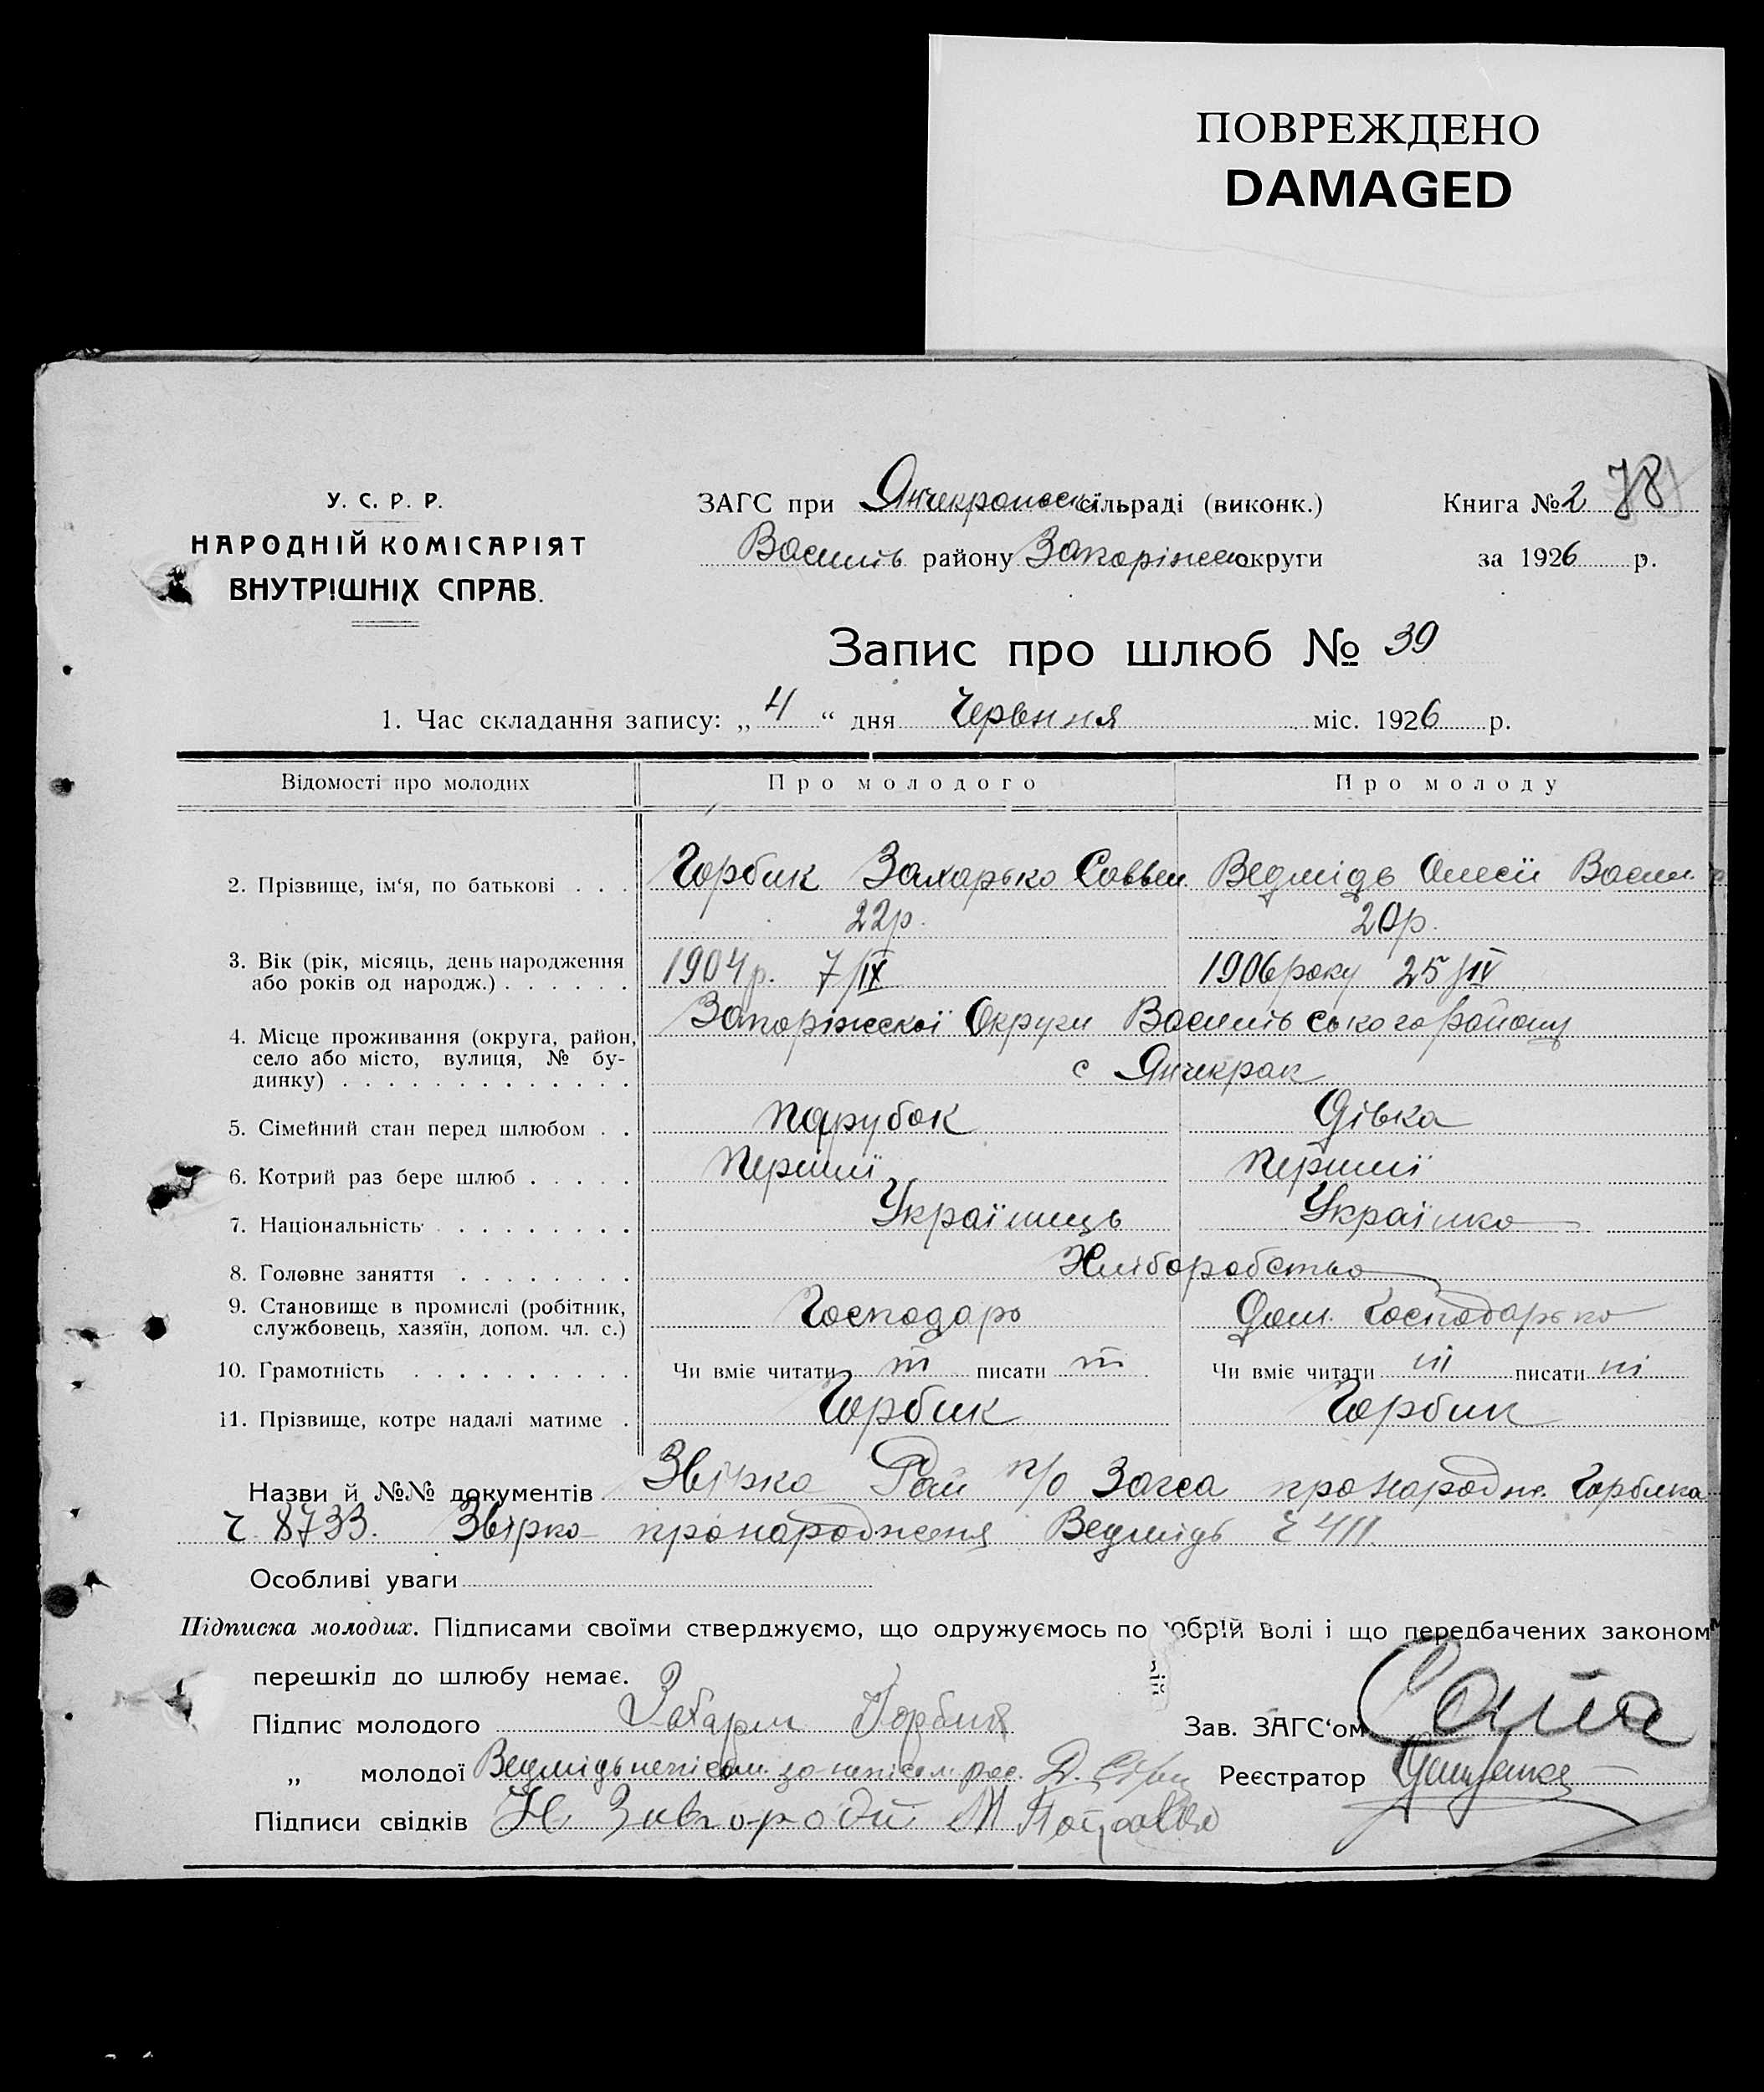 ПОВРЕЖДЕНО
DAMAGED
У. С. Р. Р.
НАРОДНІЙ КОМІСАРІЯТ
ВНУТРІШНІХ СПРАВ.
ЗАГС при Янчекрацьск сільраді (виконк.)
Книга № 2 78
Василів району Запоріжськ округи
за 1926 р.
Запис про шлюб № 39
1. Час складання запису: „ 4 “ дня Червння міс. 1926 р.
Відомості про молодих Про молодого Про молоду
2. Прізвище, ім‘я, по батькові . . . Горбик Захарько Саввы Ведмідь Олесії Васил
22р. 20р.
3. Вік (рік, місяць, день народження 1904р. 7/IX 1906року 25/IV
або років од народж.) . . . . . .
4. Місце проживання (округа, район, Запоріжскої Округи Василівського району
село або місто, вулиця, № бу-
динку) . . . . . . . . . . . . . с Янчекрак
5. Сімейний стан перед шлюбом . . Парубок Дівка
6. Котрий раз бере шлюб . . . . . Перший Перший
7. Національність . . . . . . . . . Українець Українка
8. Головне заняття . . . . . . . . Хліборобство
9. Становище в промислі (робітник, Господарь Дом. Господарька
службовець, хазяїн, допом. чл. с.)
10. Грамотність . . . . . . . . . . Чи вміє читати писати Чи вміє читати ні писати ні
11. Прізвище, котре надалі матиме . Горбик Горбик
Назви й №№ документів Звірка Рай п/о Загса про народже. Горбика
ч 8733. Звірка про народженя Ведмідь ч 411.
Особливі уваги
Підписка молодих. Підписами своїми стверджуємо, що одружуємось по добрій волі і що передбачених законом
перешкід до шлюбу немає.
Підпис молодого Захарий Горбик Зав. ЗАГС‘ом
„ молодої Ведмідь неписьм. за неписьм рос. Реєстратор
Підписи свідків Н Звигородн М